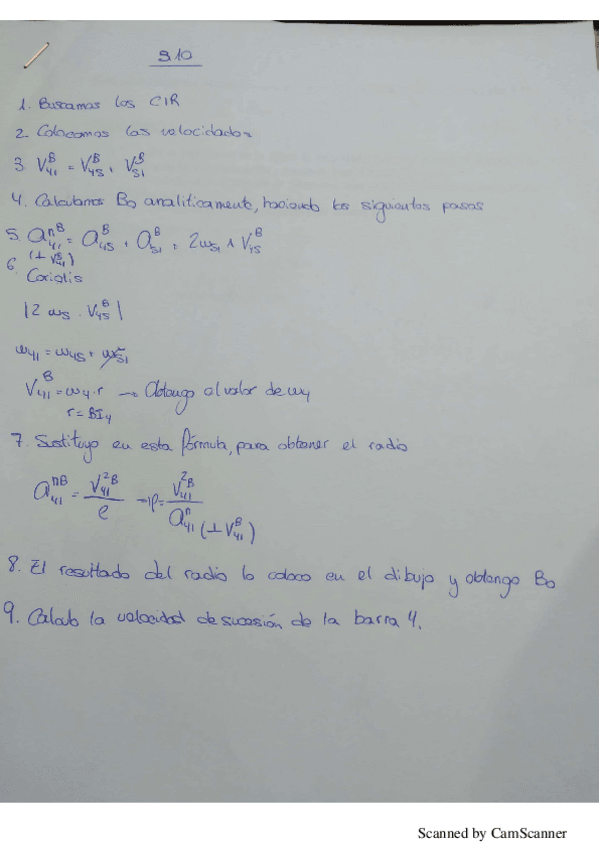 9.10
1. Buscamos los CIR
2. Colocamos las velocidades
3. V₄₁ᴮ = V₄₅ᴮ + V₅₁ᴮ
4. Calculamos B₀ analíticamente, haciendo los siguientes pasos
5. a₄₁ⁿᴮ = a₄₅ᴮ + a₅₁ᴮ + 2ω₅₁ ∧ V₄₅ᴮ
(⊥ V₄₁ᴮ)
6. Coriolis
|2 ω₅ · V₄₅ᴮ|
ω₄₁ = ω₄₅ + ω₅₁
V₄₁ᴮ = ω₄ · r → Obtengo el valor de ω₄
r = BI₄
7. Sustituyo en esta fórmula, para obtener el radio
a₄₁ⁿᴮ = V₄₁²ᴮ / ρ → ρ = V₄₁²ᴮ / a₄₁ⁿ (⊥ V₄₁ᴮ)
8. El resultado del radio lo coloco en el dibujo y obtengo B₀
9. Calculo la velocidad de sucesión de la barra 4.
Scanned by CamScanner